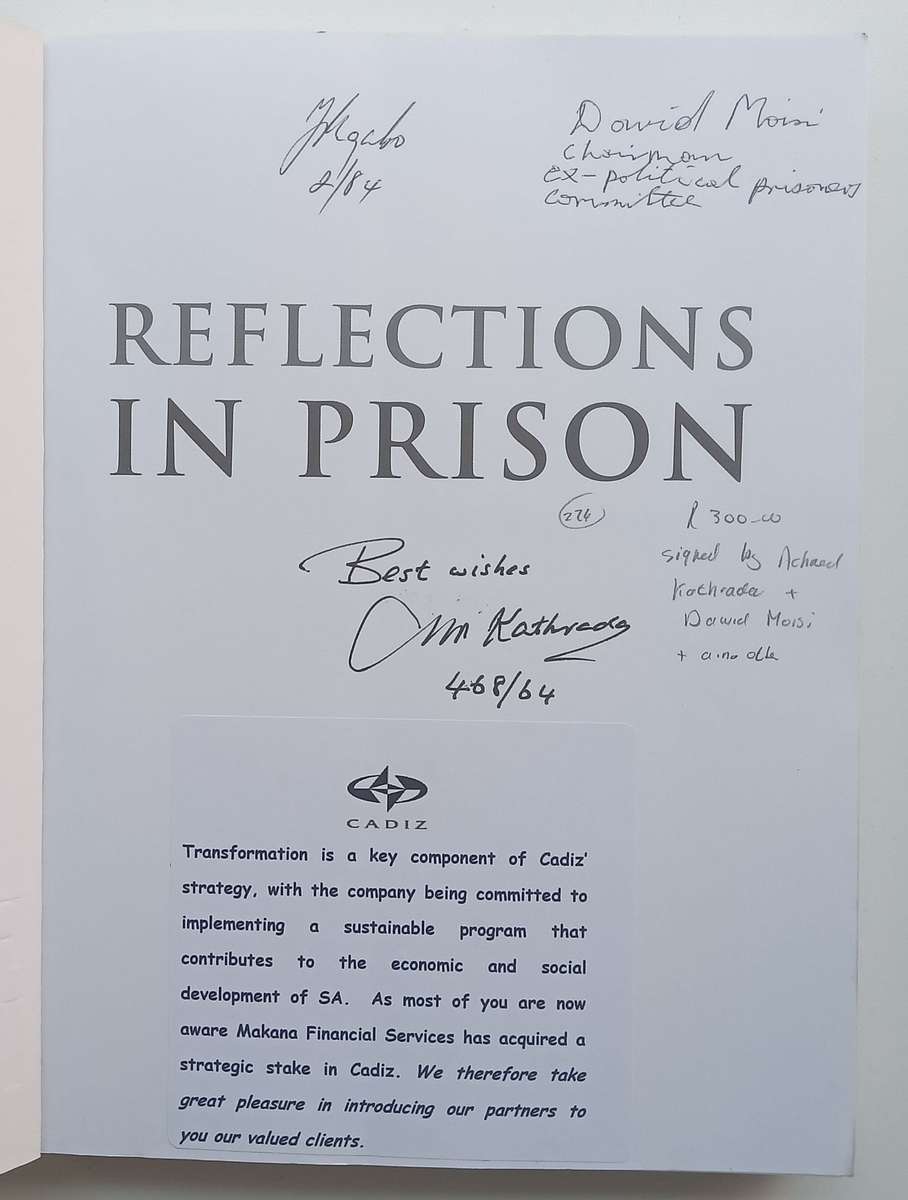 JKgabo
2/84
Dawid Moisi
Chairman
ex-political prisoners
committee
REFLECTIONS
IN PRISON
274
R 300-00
signed by Achmed
Kathrada +
Dawid Moisi
+
Best wishes
Kathrada
468/64
CADIZ
Transformation is a key component of Cadiz'
strategy, with the company being committed to
implementing a sustainable program that
contributes to the economic and social
development of SA. As most of you are now
aware Makana Financial Services has acquired a
strategic stake in Cadiz. We therefore take
great pleasure in introducing our partners to
you our valued clients.